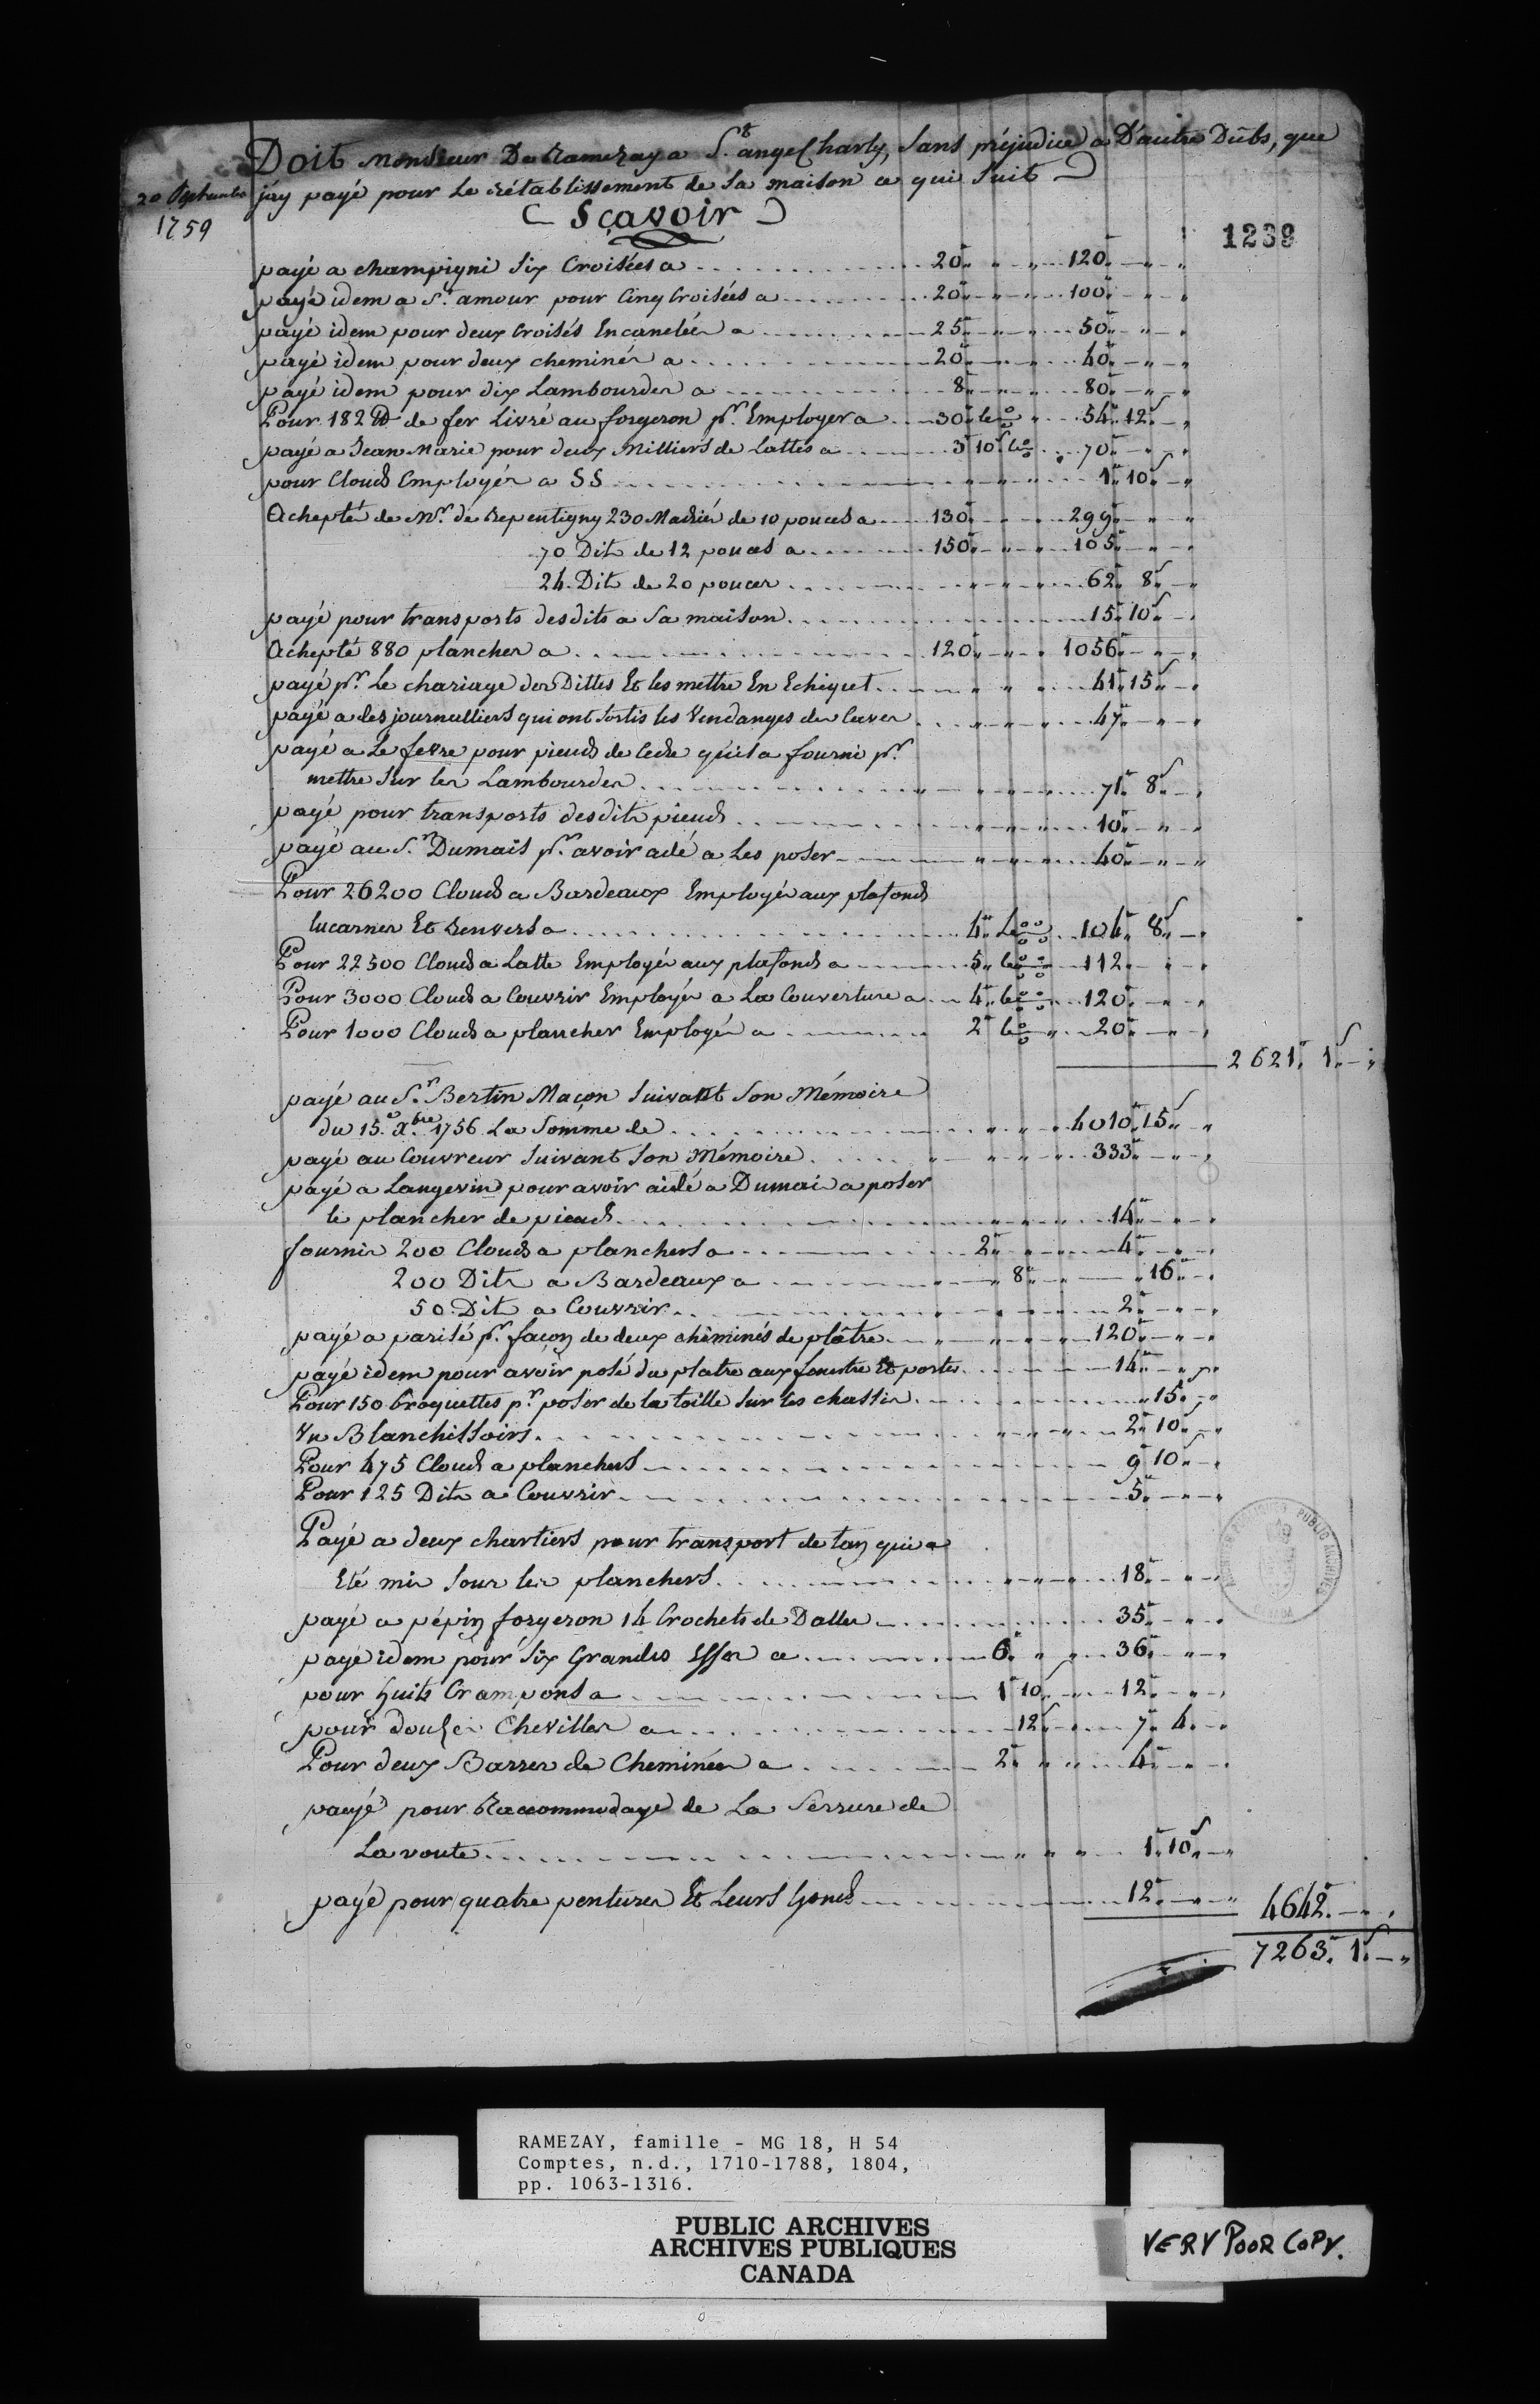 Doit Monsieur De Ramezay a Sr. ange Charly, Sans préjudice a D'autre Dûbs, que
20 Septembre jay payé pour Le rétablissement de Sa maison ce qui Suit
1759
Sçavoir
1239
payé a champigni Six Croisées a 20 120
payé idem a St. amour pour Cinq Croisées a 20 100
payé idem pour deux Croisés Encanelés a 25 50
payé idem pour deux cheminés a 20 40
payé idem pour dix Lambourdes a 8 80
Pour 182 lb de fer Livré au forgeron pr. Employer a 30 le % 54 12s
payé a Jean Marie pour deux Milliers de Lattes a 3 10s le % 70
pour Clouds Employés a SS 1 10
Achepté de Mr. de Repentigny 230 Madriés de 10 pouces a 130 299
70 Dits de 12 pouces a 150 105
24 Dits de 20 pouces 62 8s
payé pour transports desdits a Sa maison 15 10s
Achepté 880 planches a 120 1056
payé pr. Le chariage des Dittes Et les mettre En Echiquet 41 15s
payé a des journalliers qui ont Sortis les Vendanges des Caves 47
payé a Le fevre pour pieuds de Cedre qu'il a fourni pr.
mettre Sur les Lambourdes 71 8s
payé pour transports desdits pieuds 10
payé au Sr. Dumais pr. avoir aidé a Les poser 40
Pour 26200 Clouds a Bardeaux Employés aux plafonds
lucarnes Et Renvers a 4 Le 104 8s
Pour 22500 Clouds a Latte Employés aux plafonds a 5 le 112
Pour 3000 Clouds a Couvrir Employés a La Couverture a 4 le 120
Pour 1000 Clouds a plancher Employés a 2 le % 20
2621 1s
payé au Sr. Bertin Maçon Suivant Son Mémoire
du 15. Xbre 1756 La Somme de 4010 15s
payé au Couvreur Suivant Son Mémoire 333
payé a Langevin pour avoir aidé a Dumais a poser
le plancher de pieuds 14
fournis 200 Clouds a planchers a 2 4
200 Dits a Bardeaux a 8 16
50 Dits a Couvrir 2
payé a parisé pr. façon de deux chéminés de plâtre 120
payé idem pour avoir posé du platre aux fenestre Et portes 14
Pour 150 broquettes pr. poser de la toille Sur les chassis 15
Un Blanchissoirs 2 10
Pour 475 Clouds a planchers 9 10s
Pour 125 Dits a Couvrir 5
Payé a deux chartiers pour transport de tan qui a
Eté mis Sous les planchers 18
payé a pépin forgeron 14 Crochets de Dalles 35
payé idem pour Six Grandes Esses a 6 36
pour huits Crampons a 1 10s 12
pour douze Chevilles a 12s 7 4
Pour deux Barres de Cheminées a 2 4
payé pour Raccommodage de La Serrure de
La voute 1 10s
payé pour quatre pentures Et Leurs Gonds 12
4642
7263 1s
RAMEZAY, famille - MG 18, H 54
Comptes, n.d., 1710-1788, 1804,
pp. 1063-1316.
PUBLIC ARCHIVES
ARCHIVES PUBLIQUES
CANADA
VERY POOR COPY.